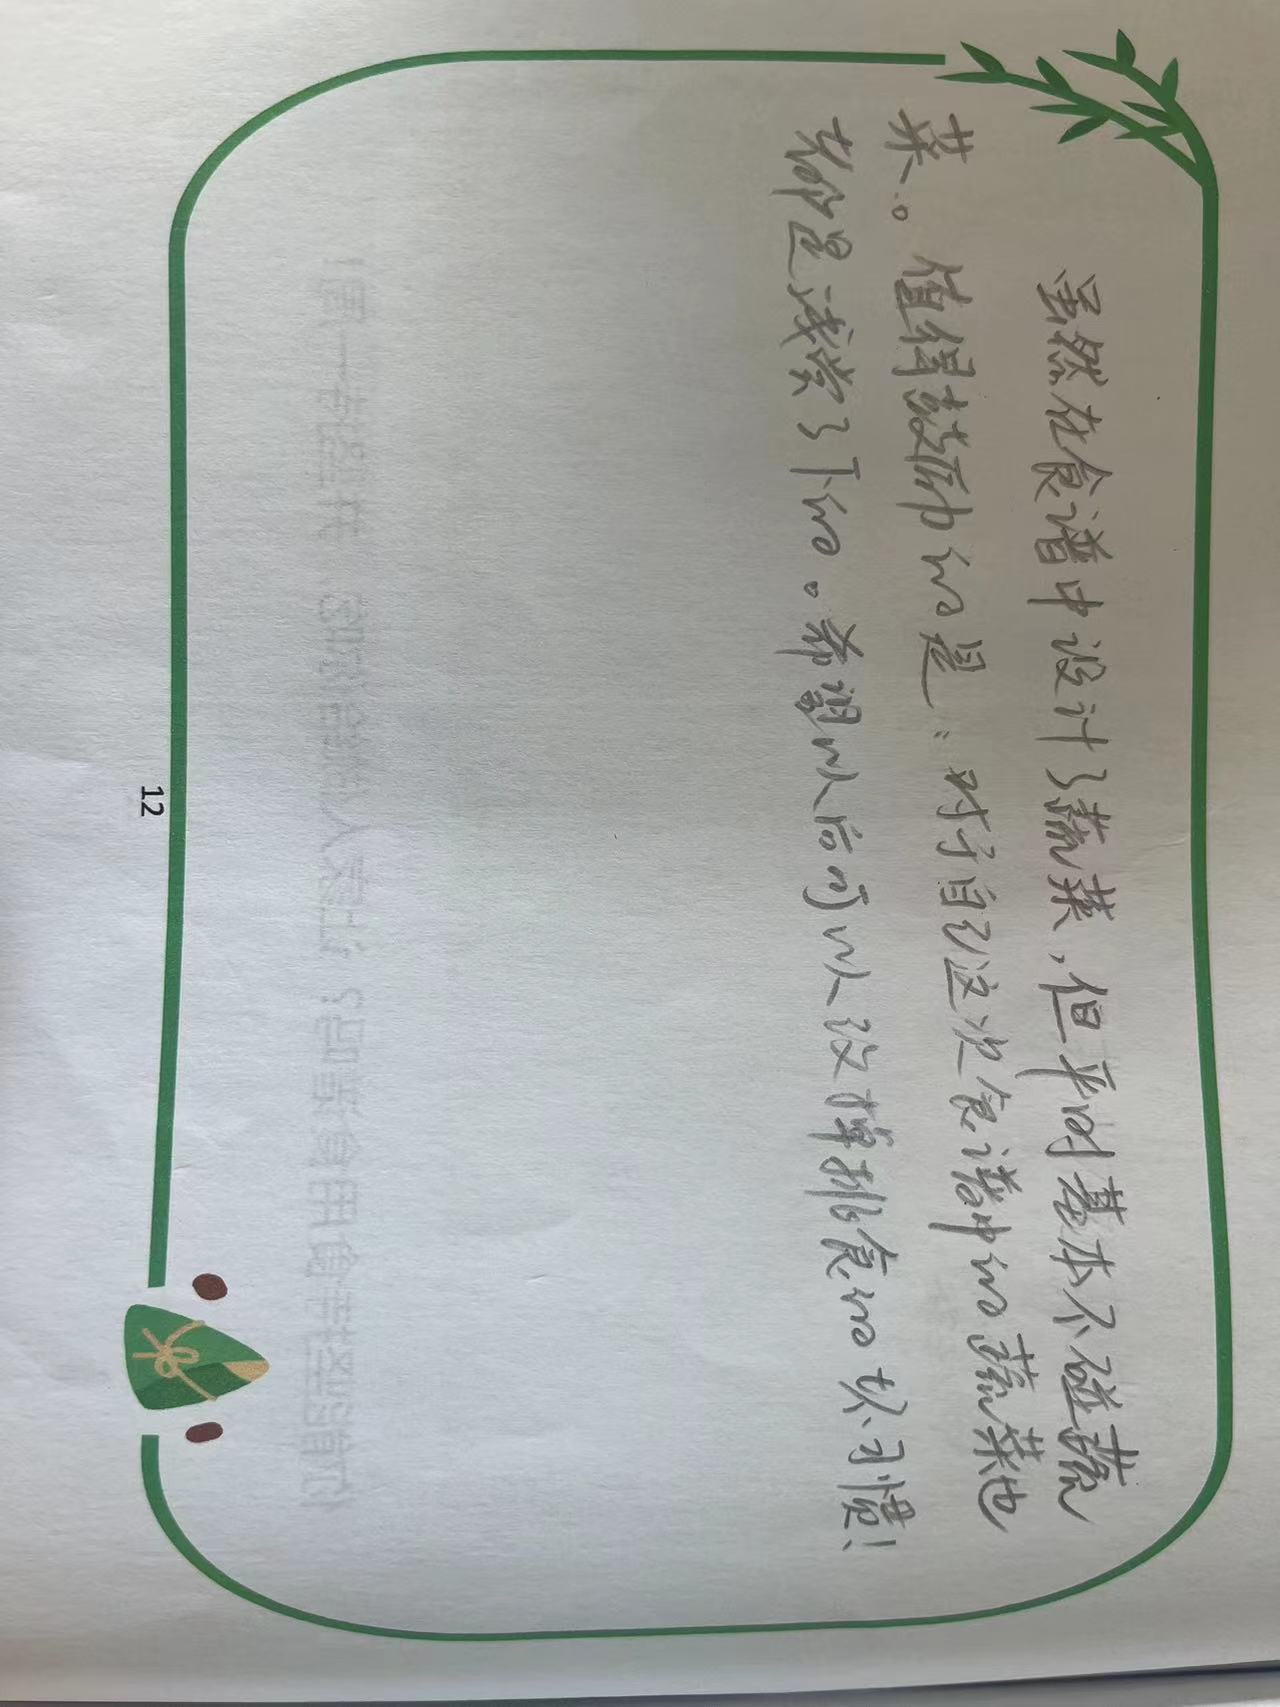 虽然在食谱中设计了蔬菜，但平时基本不碰蔬
菜。值得鼓励的是：对于自己这次食谱中的蔬菜也
都是浅尝了下的。希望以后可以改掉挑食的坏习惯！
12